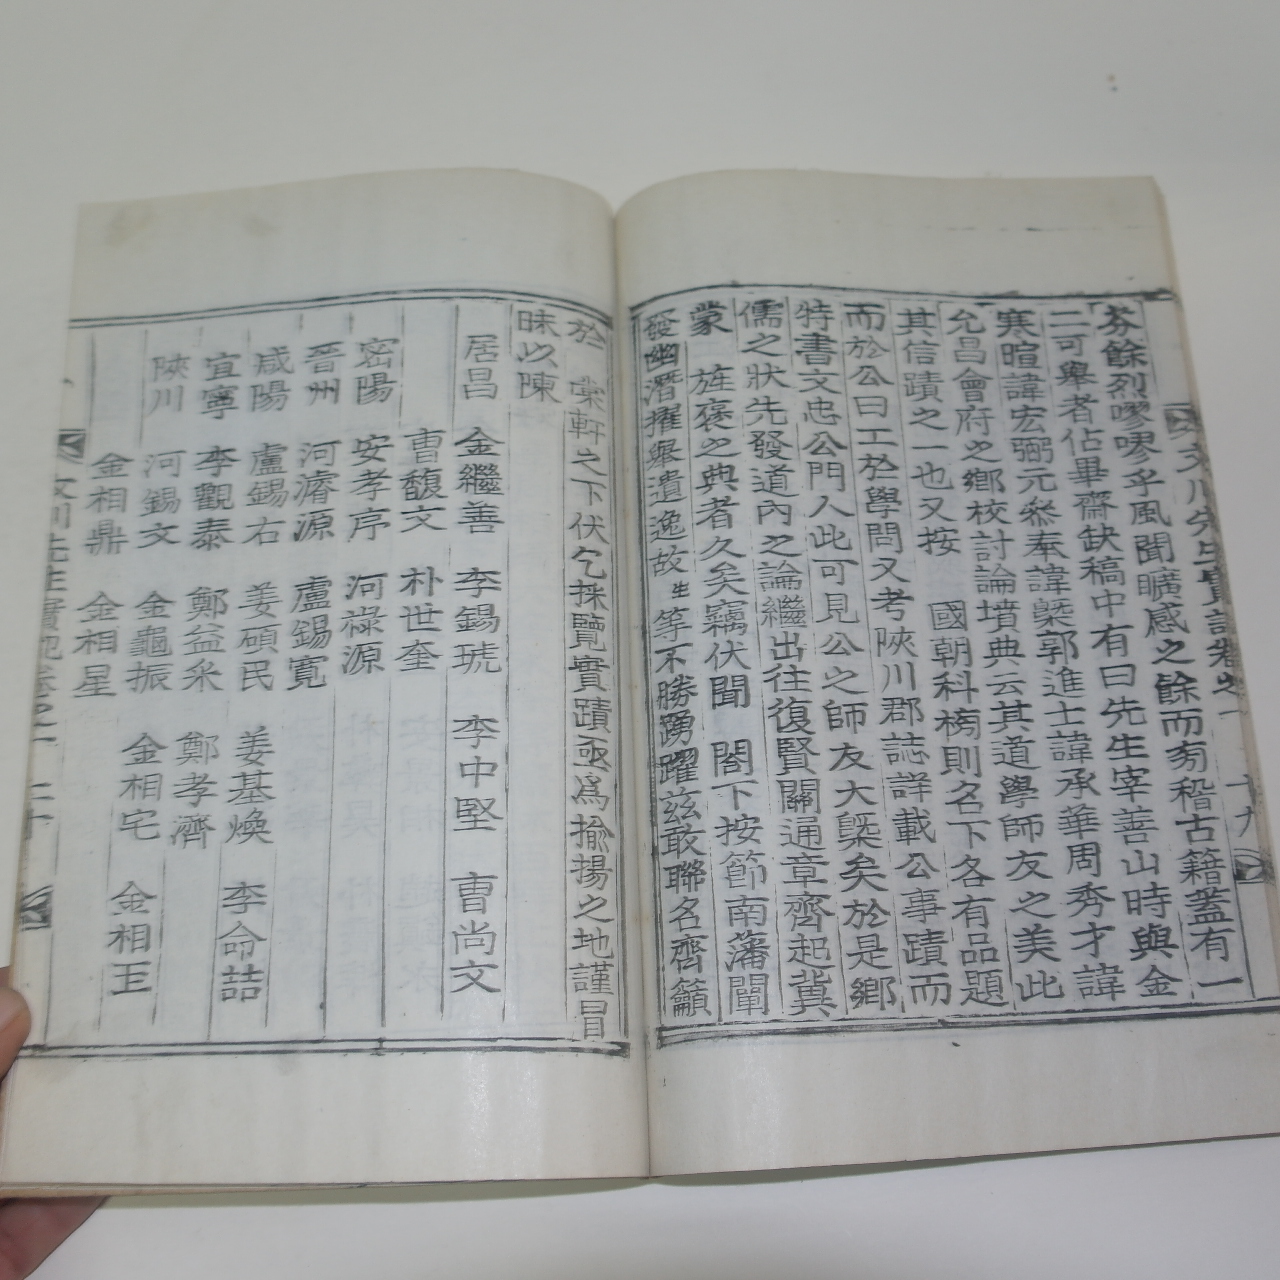 文川先生實記卷之一 十九
芬餘烈嘐嘐乎風聞曠感之餘而匆稽古籍蓋有一
二可舉者佔畢齋缺稿中有曰先生宰善山時與金
寒暄諱宏弼元叅奉諱槩郭進士諱承華周秀才諱
允昌會府之鄉校討論墳典云其道學師友之美此
其信蹟之一也又按 國朝科榜則名下各有品題
而於公曰工於學問又考陜川郡誌詳載公事蹟而
特書文忠公門人此可見公之師友大槩矣於是鄉
儒之狀先發道內之論繼出往復賢關通章齊起冀
蒙 旌褒之典者久矣竊伏聞 閤下按節南藩闡
發幽潛擢舉遺逸故生等不勝踴躍茲敢聯名齊籲
於 棠軒之下伏乞採覽實蹟亟爲揄揚之地謹冒
昧以陳
居昌 金繼善 李錫琥 李中堅 曺尚文
曺馥文 朴世奎
密陽 安孝序 河祿源
晉州 河濬源 盧錫寬
咸陽 盧錫右 姜碩民 姜基煥 李命喆
宜寧 李觀泰 鄭益采 鄭孝濟
陜川 河錫文 金龜振 金相宅 金相玉
金相鼎 金相星
文川先生實記卷之一 二十